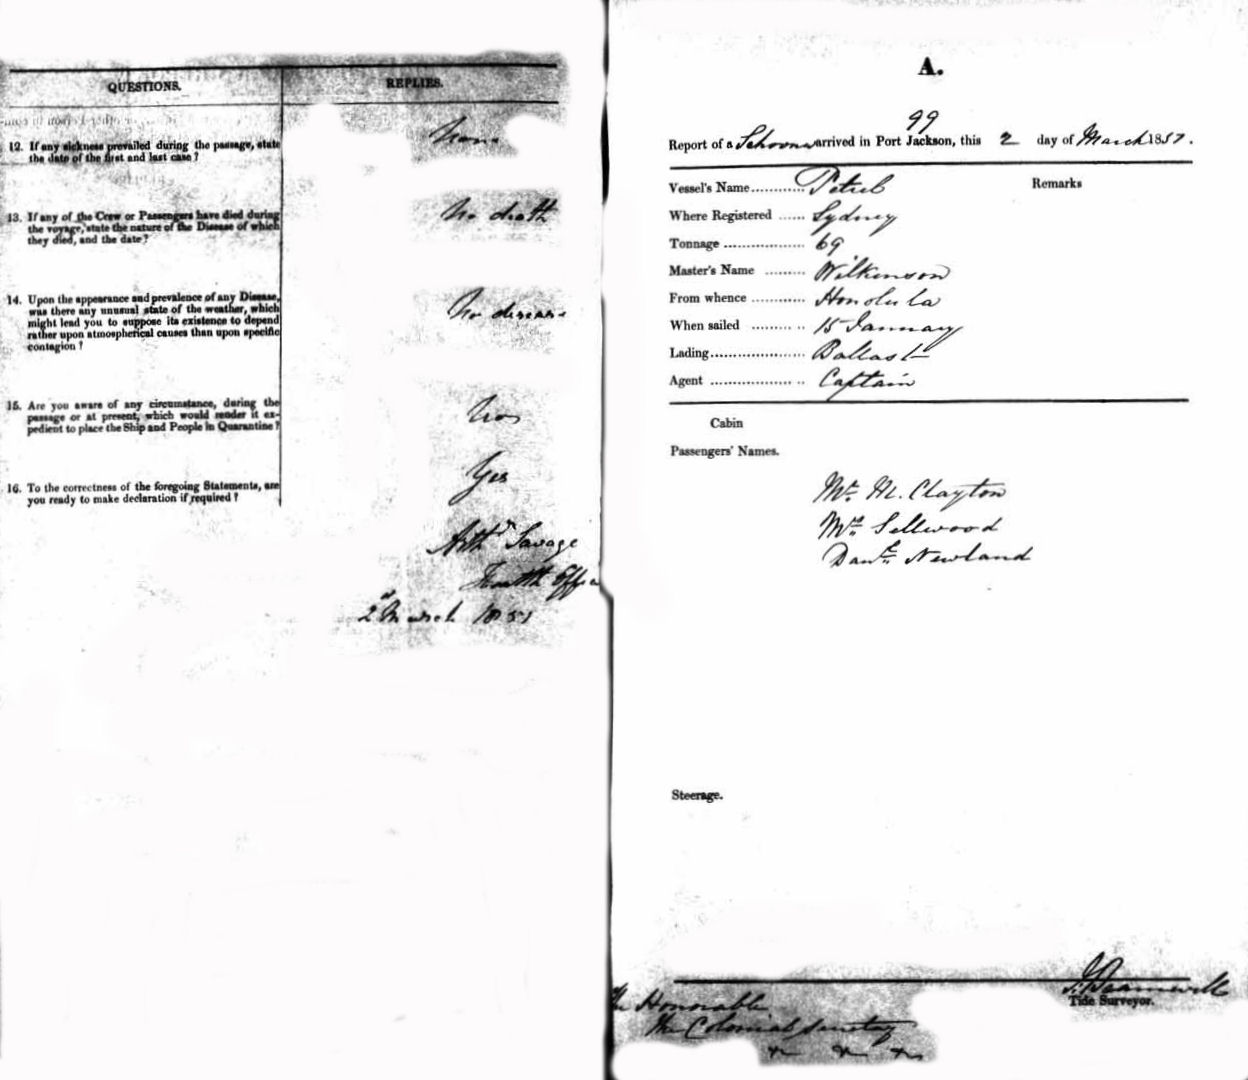 QUESTIONS. REPLIES.
12. If any sickness prevailed during the passage, state
the date of the first and last case?
None
13. If any of the Crew or Passengers have died during
the voyage, state the nature of the Disease of which
they died, and the date?
No death
14. Upon the appearance and prevalence of any Disease,
was there any unusual state of the weather, which
might lead you to suppose its existence to depend
rather upon atmospherical causes than upon specific
contagion?
No disease
15. Are you aware of any circumstance, during the
passage or at present, which would render it ex-
pedient to place the Ship and People in Quarantine?
16. To the correctness of the foregoing Statements, are
you ready to make declaration if required?
Yes
Arthr Savage
2d March 1851
A.
99
Report of a Schooner arrived in Port Jackson, this 2 day of March 1851.
Vessel's Name............ Petrel Remarks
Where Registered ...... Sydney
Tonnage .................. 69
Master's Name ......... Wilkinson
From whence ............ Honolula
When sailed ......... .. 15 January
Lading..................... Ballast
Agent .................. .. Captain
Cabin
Passengers' Names.
Mr. M. Clayton
Sellwood
Danl. Newland
Steerage.
Tide Surveyor.
The Honorable
The Colonial Secretary